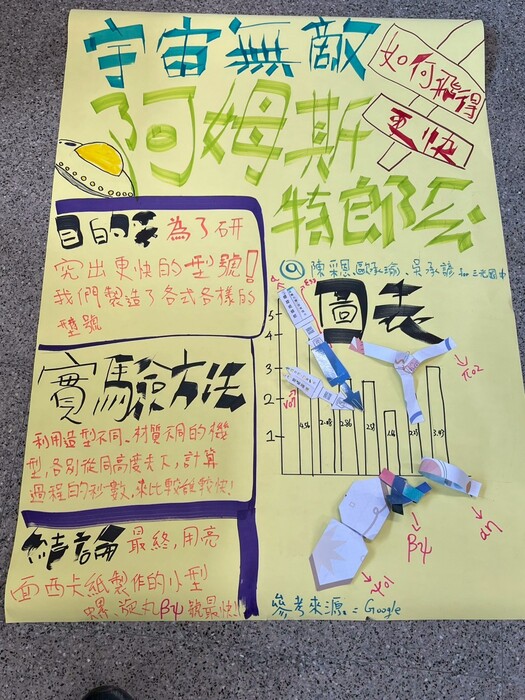 宇宙無敵
阿姆斯
特郎
如何飛得
更快
目的
為了研
究出更快的型號!
我們製造了各式各樣的
型號
實驗方法
利用造型不同、材質不同的機
型,各別從同高度丟下,計算
過程的秒數,來比較誰較快!
結論
最終,用亮
面西卡紙製作的小型
螺旋丸βψ號最快!!
陳采恩、歐承瑜、吳承諺
圖表
5
4
3
2
1
2.86
3.43
πο2
αη
βψ
ψο1
參考來源:Google